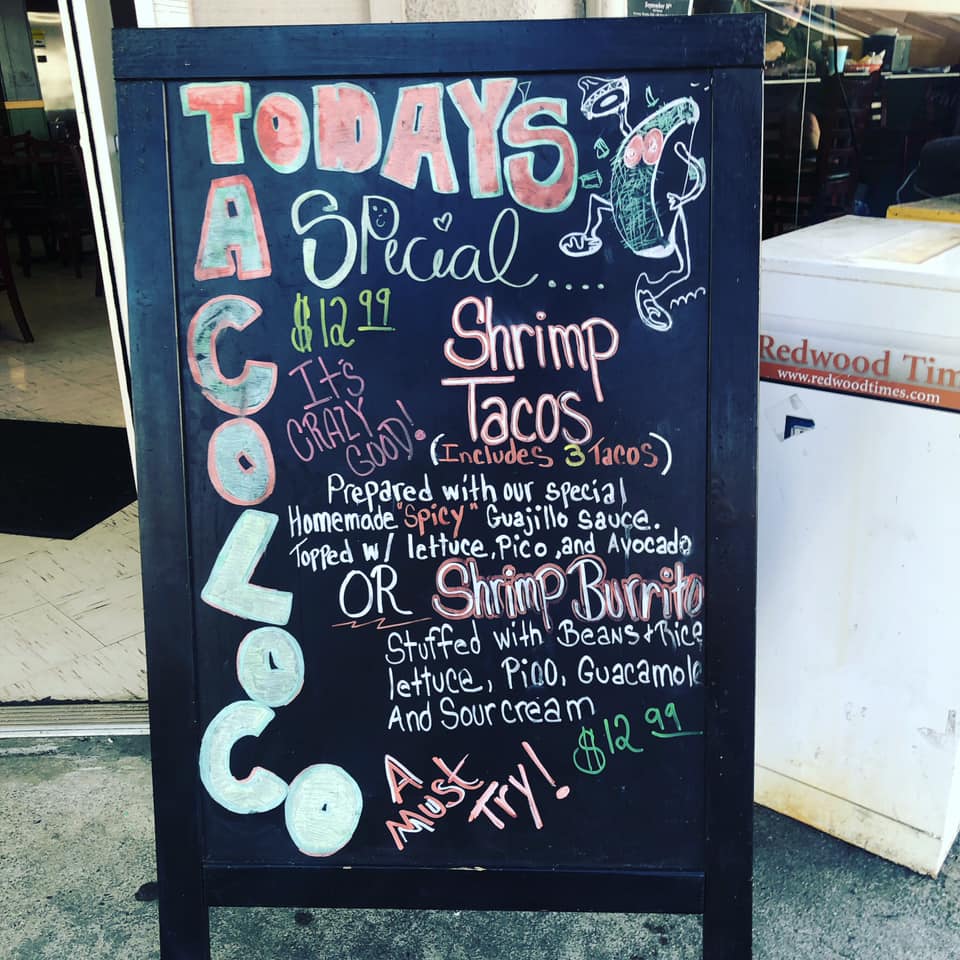 September 14th
TODAYS
TACO LOCO
Special.....
$12.99
It's
CRAZY
GOOD!
Shrimp
Tacos
(Includes 3 Tacos)
Prepared with our special
Homemade "Spicy" Guajillo sauce.
Topped w/ lettuce, Pico, and Avocado
OR Shrimp Burrito
Stuffed with Beans + Rice
lettuce, Pico, Guacamole
And Sour cream
$12.99
A
Must
Try!
Redwood Tim
www.redwoodtimes.com